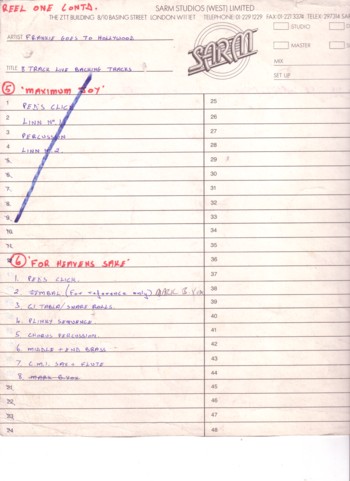 REEL ONE CONTD.
SARM STUDIOS (WEST) LIMITED
THE ZTT BUILDING 8/10 BASING STREET LONDON W11 1ET TELEPHONE: 01-229 1229 FAX 01-221
ARTIST FRANKIE GOES TO HOLLYWOOD
SARM
STUDIO
MASTER
MIX
SET UP
TITLE 8 TRACK LIVE BACKING TRACKS
⑤ 'MAXIMUM JOY'
1 PED'S CLICK 25
2 LINN Nº 1
3 PERCUSSION
4 LINN Nº 2 28
5. 29
6. 30
7. 31
8. 32
9. 33
10. 34
11. 35
⑥ 'FOR HEAVENS SAKE'
1. PED'S CLICK. 37
2. (For reference only) 38
3. / SNARE ROLLS 39
4. SEQUENCE. 40
5 CHORUS PERCUSSION. 41
6. MIDDLE + END BRASS 42
7. C.M.I. SAX + FLUTE 43
8. 44
21. 45
22. 46
23. 47
24. 48